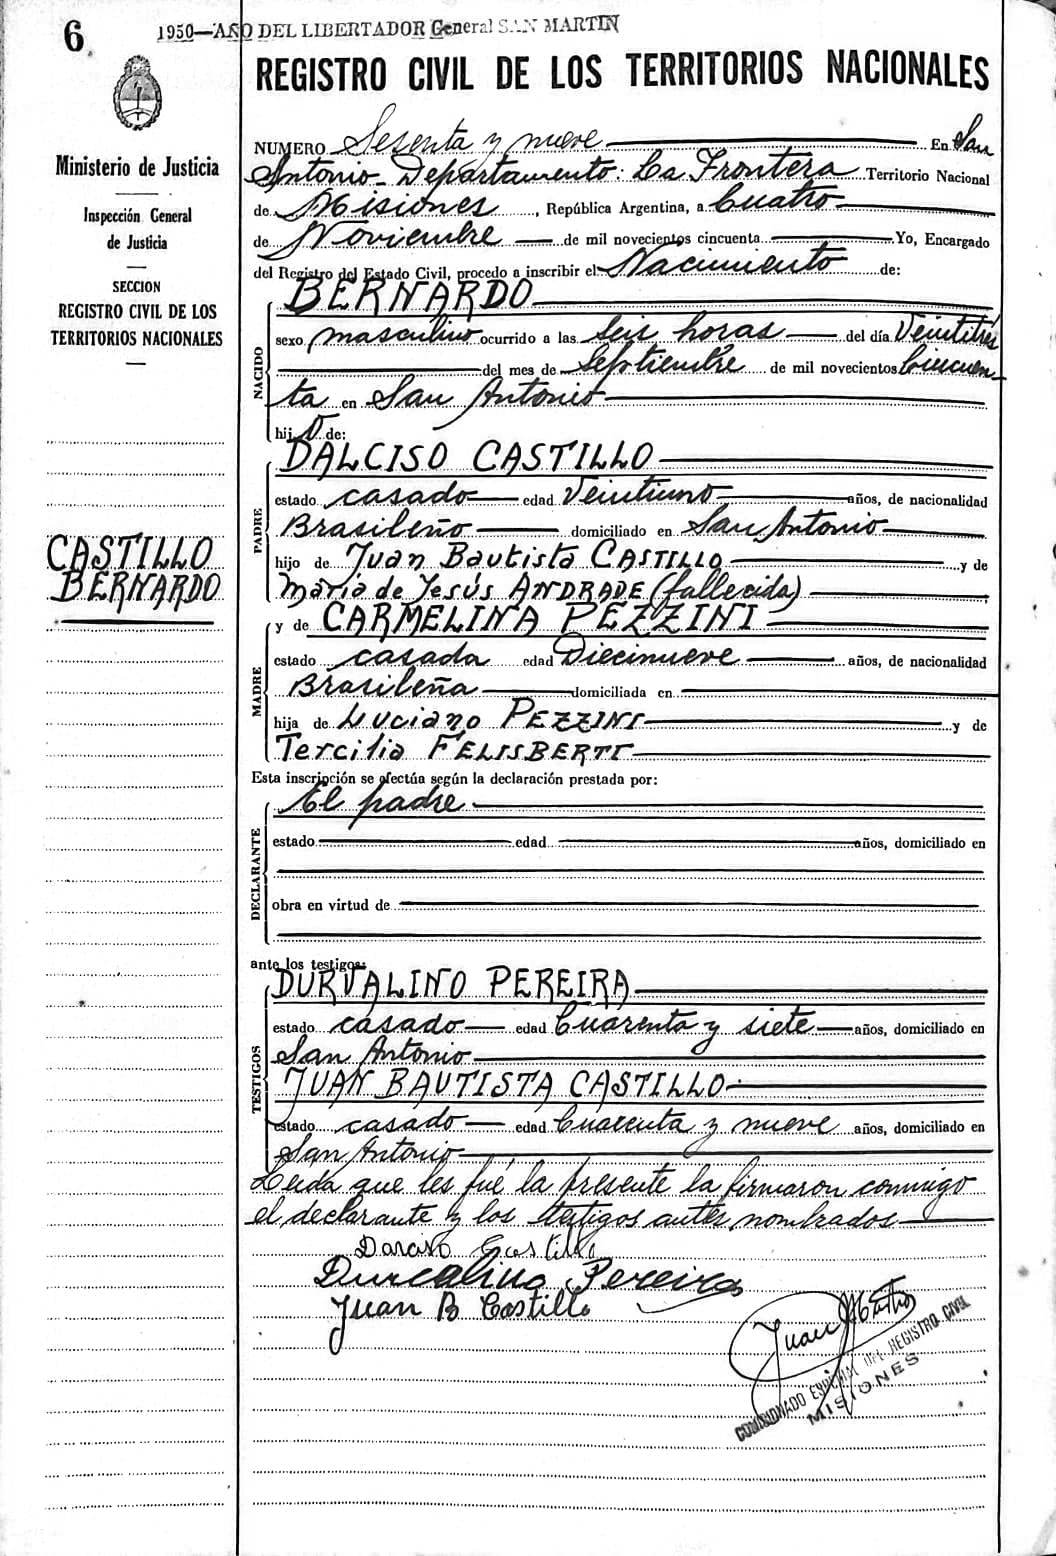 6
1950—AÑO DEL LIBERTADOR General SAN MARTIN
REGISTRO CIVIL DE LOS TERRITORIOS NACIONALES
Ministerio de Justicia
Inspección General
de Justicia
SECCION
REGISTRO CIVIL DE LOS
TERRITORIOS NACIONALES
CASTILLO
BERNARDO
NUMERO Sesenta y nueve En San
Antonio - Departamento: La Frontera Territorio Nacional
de Misiones, República Argentina, a Cuatro
de Noviembre de mil novecientos cincuenta Yo, Encargado
del Registro del Estado Civil, procedo a inscribir el Nacimiento de:
NACIDO
BERNARDO
sexo masculino ocurrido a las seis horas del día Veintitrés
del mes de Septiembre de mil novecientos Cincuen-
ta en San Antonio
hijo de:
PADRE
DALCISO CASTILLO
estado casado edad Veintiuno años, de nacionalidad
Brasileño domiciliado en San Antonio
hijo de Juan Bautista CASTILLO y de
María de Jesús ANDRADE (fallecida)
MADRE
y de CARMELINA PEZZINI
estado casada edad Diecinueve años, de nacionalidad
Brasileña domiciliada en
hija de Luciano PEZZINI y de
Tercilia FELISBERTI
Esta inscripción se efectúa según la declaración prestada por:
DECLARANTE
El padre
estado edad años, domiciliado en
obra en virtud de
ante los testigos:
TESTIGOS
DURVALINO PEREIRA
estado casado edad Cuarenta y siete años, domiciliado en
San Antonio
JUAN BAUTISTA CASTILLO
estado casado edad Cuarenta y nueve años, domiciliado en
San Antonio
Leída que les fué la presente la firmaron conmigo
el declarante y los testigos antes nombrados
Darciso Castillo
Durcalino Pereira
Juan B Castillo
Juan
COMISIONADO ESPECIAL DEL REGISTRO CIVIL
MISIONES